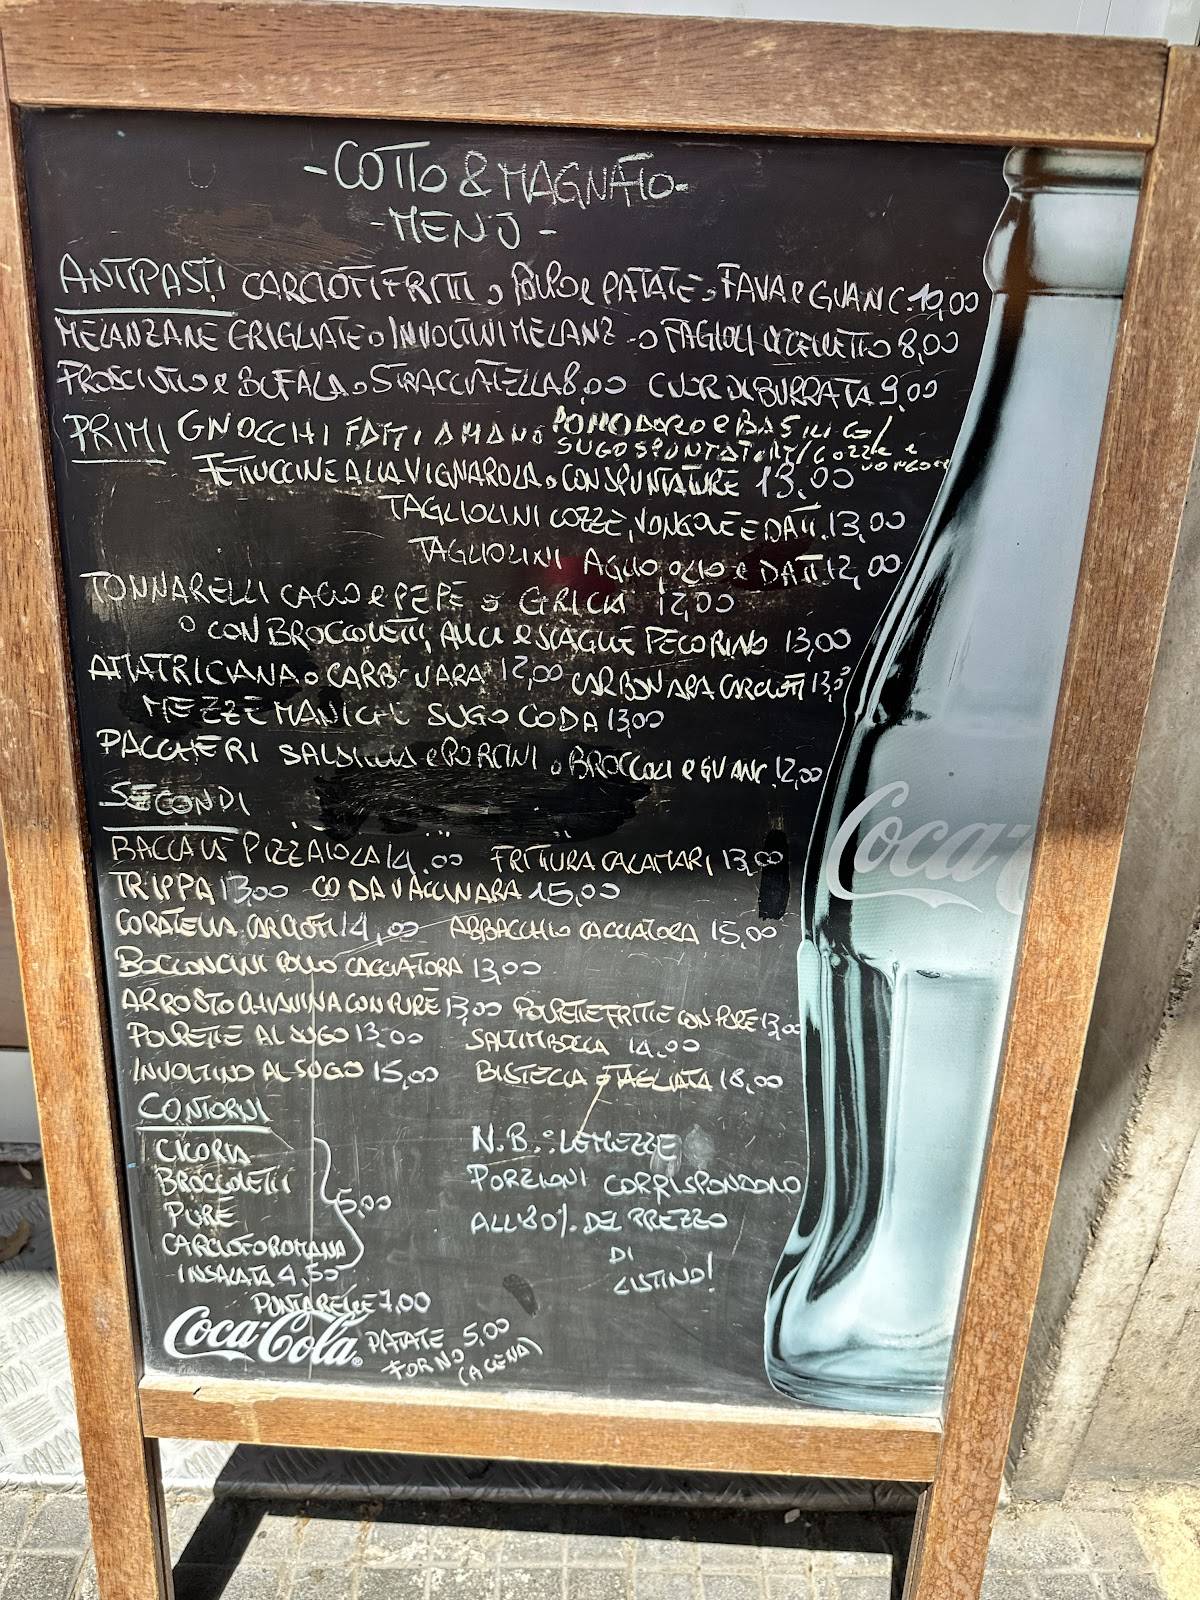 -COTTO & MAGNATO-
-MENÙ-
ANTIPASTI CARCIOFI FRITTI o POLPO e PATATE o FAVA e GUANC. 10,00
MELANZANE GRIGLIATE o INVOLTINI MELANZ - o FAGIOLI UCCELLETTO 8,00
PROSCIUTTO e BUFALA o STRACCIATELLA 8,00 CUOR DI BURRATA 9,00
PRIMI GNOCCHI FATTI A MANO POMODORO e BASILICO/
SUGO SPUNTATURE/COZZE e VONGOLE
FETTUCCINE ALLA VIGNAROLA o CON SPUNTATURE 13,00
TAGLIOLINI COZZE, VONGOLE E DATT. 13,00
TAGLIOLINI AGLIO, OLIO e DATT 12,00
TONNARELLI CACIO e PEPE o GRICIA 12,00
o CON BROCCOLETTI, ALICI e SCAGLIE PECORINO 13,00
AMATRICIANA o CARBONARA 12,00 CARBONARA CARCIOFI 13,0
MEZZE MANICHE SUGO CODA 13,00
PACCHERI SALSICCIA e PORCINI o BROCCOLI e GUANC. 12,00
SECONDI
BACCALÀ PIZZAIOLA 14,00 FRITTURA CALAMARI 13,00
TRIPPA 13,00 CODA VACCINARA 15,00
CORATELLA CARCIOFI 14,00 ABBACCHIO CACCIATORA 15,00
BOCCONCINI POLLO CACCIATORA 13,00
ARROSTO CHIANINA CON PURÈ 13,00 POLPETTE FRITTE CON PURÈ 13,00
POLPETTE AL SUGO 13,00 SALTIMBOCCA 14,00
INVOLTINO AL SUGO 15,00 BISTECCA o TAGLIATA 18,00
CONTORNI
CICORIA
BROCCOLETTI
PURÈ
CARCIOFO ROMANA
5,00
INSALATA 4,50
PUNTARELLE 7,00
PATATE
FORNO 5,00
(A CENA)
N.B.: LE MEZZE
PORZIONI CORRISPONDONO
ALL'80% DEL PREZZO
DI
LISTINO!
Coca-Cola
Coca-C